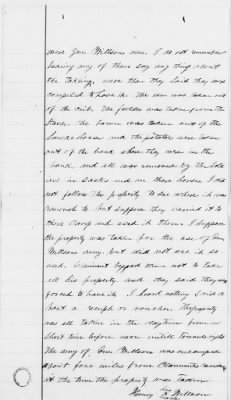 were Gen Wilsons men. I do not remember
hearing any of them say any thing about
the taking, more than they said they were
compeled to have it. The corn was taken out
of the crib. The fodder was taken from the
the bacon was taken out of the
Smoke house and the potatoes were taken
out of the bank where they were in the
bank, and all was removed by the Sold
iers in sacks and on their horses. I did
not follow the property to see where it was
removed to but suppose they carried it to
their Camp and used it there. I suppose
the property was taken for the use of Gen
Wilsons army but did not see it so
used. Claimant begged them not to take
all his property and they said they were
forced to have it. I heard nothing said a
bout a receipt or voucher. The property
was all taken in the daytime from a
short time before noon untill towards night
The army of Gen Wilson was encamped
about four miles from Claimants residence
at the time the property was taken
Henry his X mark Wilson